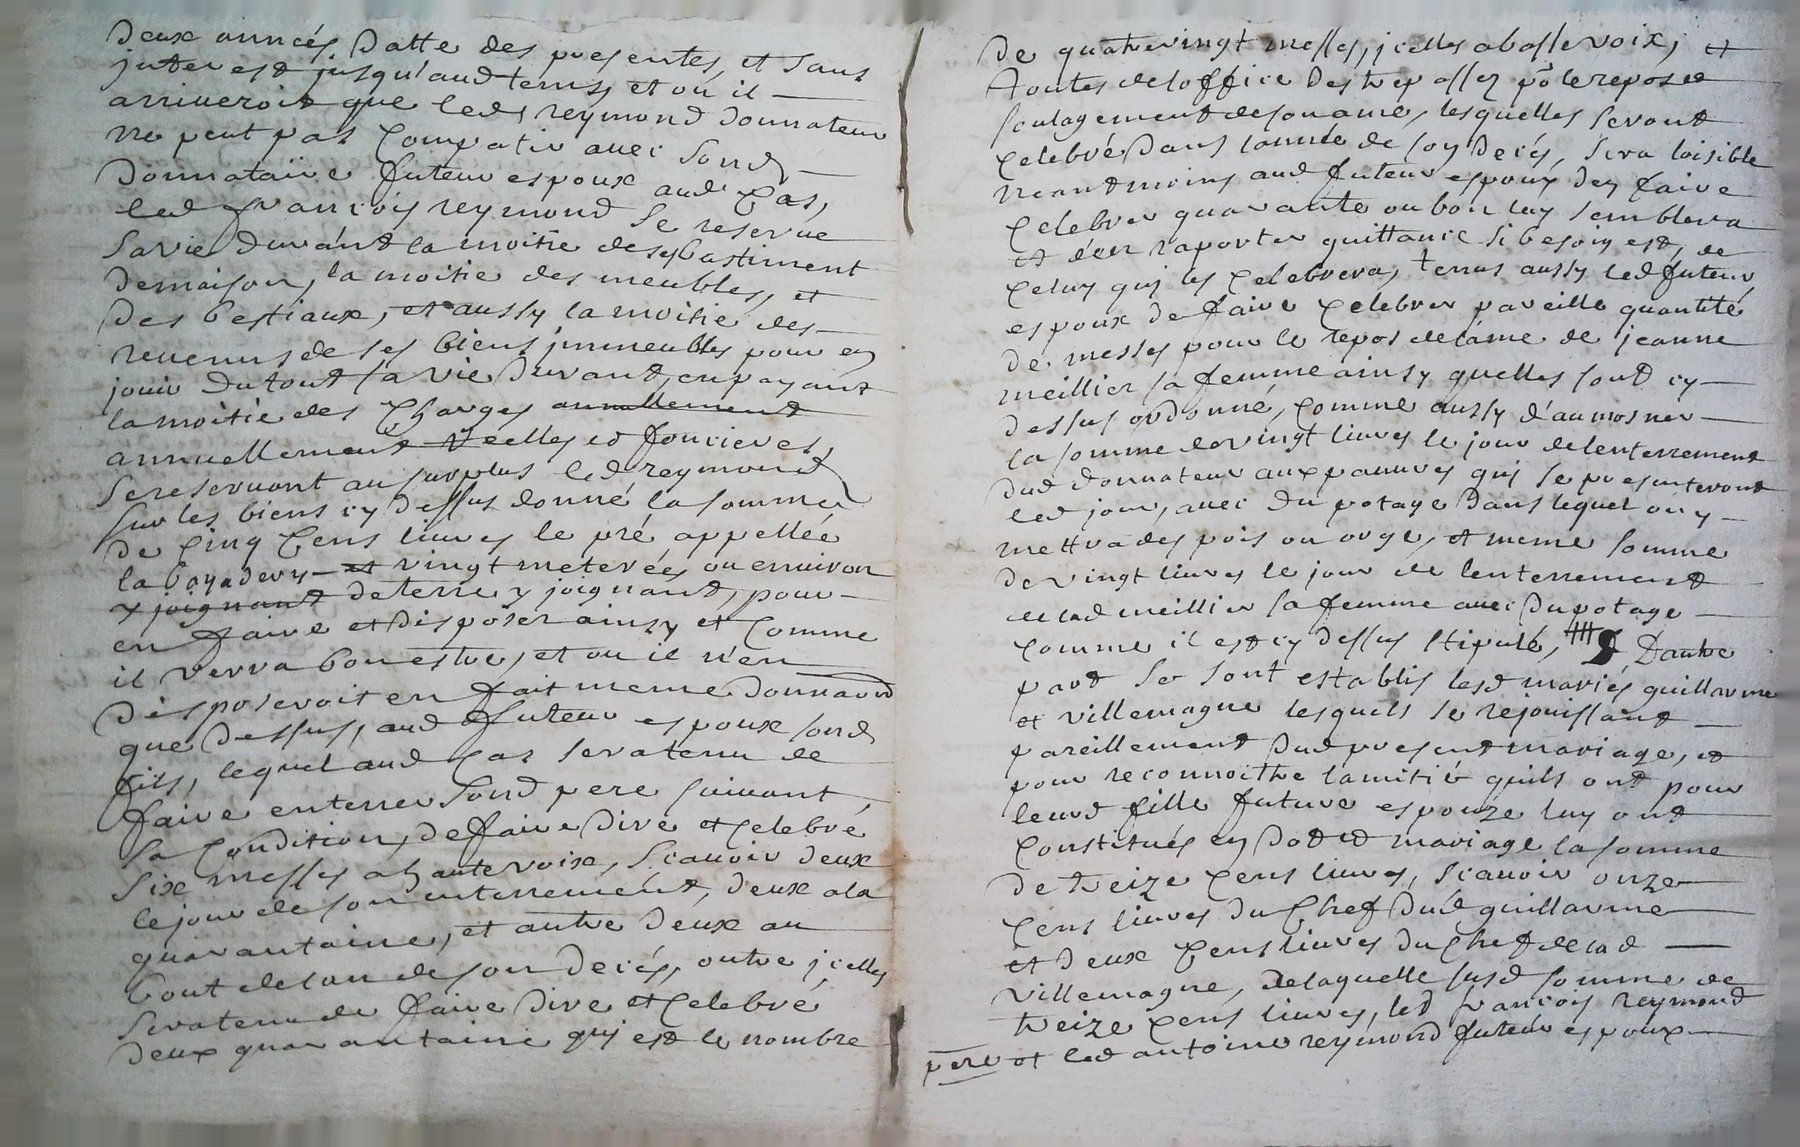 deux années datte des presentes, et sans
jnterest jusqu'aud tems, et ou il
arriveroit que led reymond donnateur
ne peut pas compatir avec sond
donnataire futeur espoux aud cas,
led françois reymond se reserve
sa vie durant la moitié desd bastiment
de maison, la moitié des meubles, et
des bestiaux, et aussy la moitié des
revenus de ses biens jmmeubles pour en
jouir du tout sa vie durant, en payant
la moitié des charges annullement
annuellement reelles et foncieres,
se reservant au surplus led reymond
sur les biens cy dessus donné la somme
de cinq cens livres le pré appellée
la boyadery et vingt meterées ou environ
y joignant de terre y joignant, pour
en faire et disposer ainsy et comme
il verra bon estre, et ou il n'en
disposeroit en fait meme donnaon
que dessus, aud futeur espoux sond
fils, lequel aud cas sera tenu de
faire enterrer sond pere suivant
sa condition, de faire dire et celebré
six messes a haute voix, sçavoir deux
le jour de son enterrement, deux a la
quarantaine, et autre deux au
bout de lan de son decés, outre jcelles
sera tenu de faire dire et celebré
deux quarantaine qui est le nombre
de quatrevingt messes, jcelles a basse voix, et
toutes de loffice des trepasses po.r le repos et
soulagement de son ame, lesquelles seront
celebré dans lannée de son decés, sera loisible
neantmoins aud futeur espoux den faire
celebrer quarante ou bon luy semblera
et d'en raporter quittance si besoin est, de
celuy qui les celebrera, tenus aussy led futeur
espoux de faire celebrer pareille quantité
de messes pour le repos de l'ame de jeanne
meillier sa femme ainsy quelles sont cy
dessus ordonné, comme aussy d'aumosner
la somme de vingt livres le jour de lenterrement
dud donnateur aux pauvres qui se presenteront
led jour, avec du potage dans lequel on y
mettra des pois ou orge, et meme somme
de vingt livres le jour de lenterrement
de lad meillier sa femme avec du potage
comme il est cy dessus stipulé, Dautre
part se sont establis lesd mariés guillaume
et villemagne lesquels se rejouissant
pareillement dud present mariage, et
pour reconnoitre lamitié quils ont pour
leurd fille future espouze luy ont
constitués en dot et mariage la somme
de treize cens livres, sçavoir onze
cens livres du chef dud guillaume
et deux cens livres du chef de lad
villemagne, delaquelle susd somme de
treize cens livres, led françois reymond
pere et led antoine reymond futeur espoux